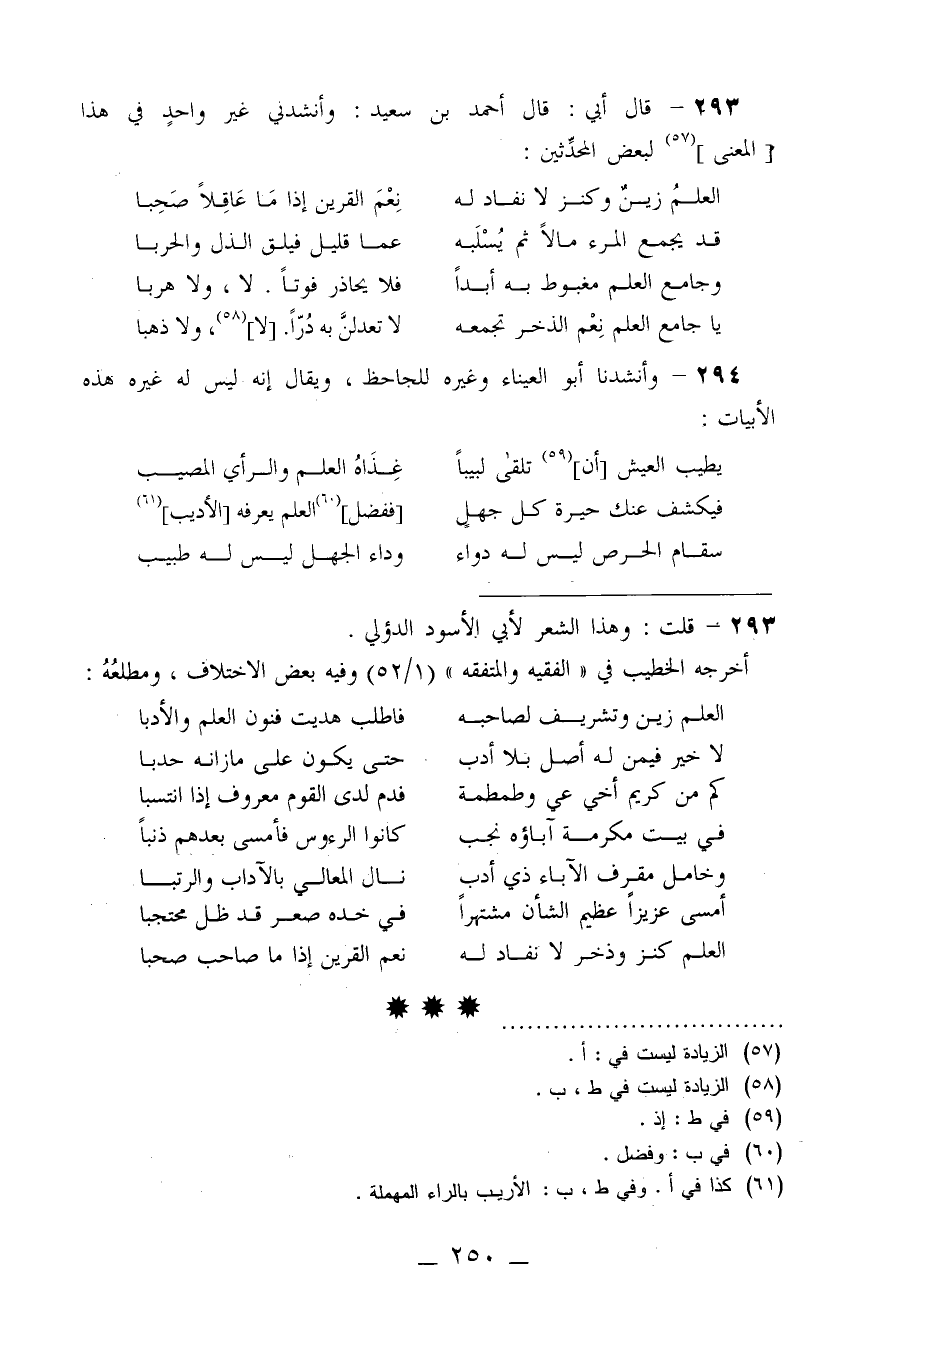 ٢٩٣ - قال أبي : قال أحمد بن سعيد : وأنشدني غير واحدٍ في هذا
[ المعنى ](٥٧) لبعض المحدِّثين :
العلـمُ زيـنٌ وكنـز لا نفـاد لـه نِعْمَ القرين إذا مَا عَاقِلاً صَحِبا
قـد يجمـع المرء مـالاً ثم يُسْلَبه عمـا قليل فيلـق الـذل والحربـا
وجامـع العلـم مغبـوط بـه أبـداً فلا يحاذر فوتـاً . لا ، ولا هربا
يا جامع العلم نِعْم الذخـر تجمعه لا تعدلنَّ به دُرّاً. [لا](٥٨)، ولا ذهبا
٢٩٤ - وأنشدنا أبو العيناء وغيره للجاحظ ، ويقال إنه ليس له غيره هذه
الأبيات :
يطيب العيش [أن](٥٩) تلقىٰ لبيباً غِـذَاهُ العلـم والـرأي المصيـب
فيكشف عنك حيرة كـل جهـلٍ [ففضل](٦٠)العلم يعرفه [الأديب](٦١)
سقـام الحـرص ليـس لـه دواء وداء الجهـل ليـس لـه طبيب
٢٩٣ - قلت : وهذا الشعر لأبي الأسود الدؤلي .
أخرجه الخطيب في « الفقيه والمتفقه » (٥٢/١) وفيه بعض الاختلاف ، ومطلعُهُ :
العلـم زيـن وتشريـف لصاحبـه فاطلب هديت فنون العلم والأدبا
لا خير فيمن لـه أصـل بـلا أدب حتـى يكـون علـى مازانـه حدبـا
كم من كريم أخي عي وطمطمة فدم لدى القوم معروف إذا انتسبا
فـي بيـت مكرمـة آباؤه نجـب كانوا الرءوس فأمسى بعدهم ذنباً
وخامـل مقـرف الآبـاء ذي أدب نـال المعالـي بالآداب والرتبـا
أمسى عزيزاً عظيم الشأن مشتهراً فـي خـده صعـر قـد ظـل محتجبا
العلـم كنـز وذخـر لا نفـاد لـه نعم القرين إذا ما صاحب صحبا
(٥٧) الزيادة ليست في : أ .
(٥٨) الزيادة ليست في ط ، ب .
(٥٩) في ط : إذ .
(٦٠) في ب : وفضل .
(٦١) كذا في أ . وفي ط ، ب : الأريب بالراء المهملة .
ــ ٢٥٠ ــ